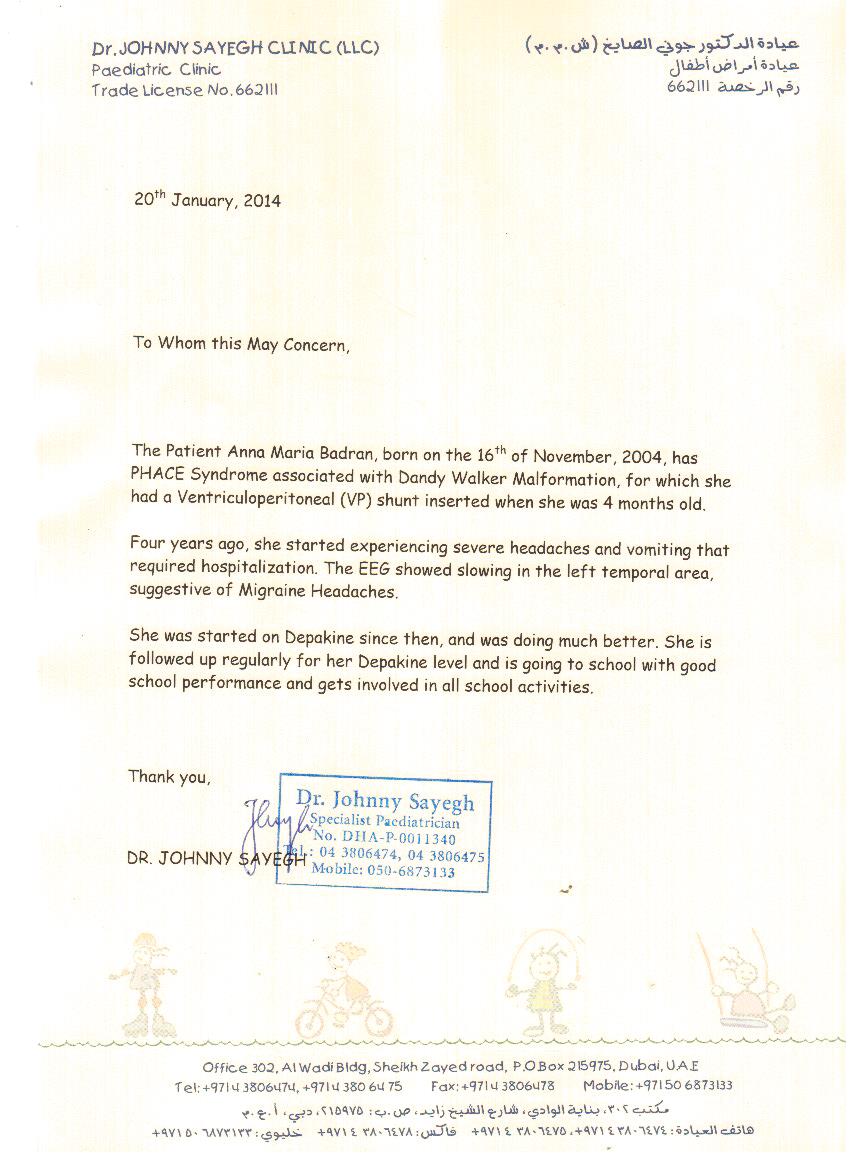 Dr. JOHNNY SAYEGH CLINIC (LLC)
Paediatric Clinic
Trade License No. 662111
عيادة الدكتور جوني الصايغ (ش.م.م)
عيادة أمراض أطفال
رقم الرخصة 662111
20th January, 2014
To Whom this May Concern,
The Patient Anna Maria Badran, born on the 16th of November, 2004, has
PHACE Syndrome associated with Dandy Walker Malformation, for which she
had a Ventriculoperitoneal (VP) shunt inserted when she was 4 months old.
Four years ago, she started experiencing severe headaches and vomiting that
required hospitalization. The EEG showed slowing in the left temporal area,
suggestive of Migraine Headaches.
She was started on Depakine since then, and was doing much better. She is
followed up regularly for her Depakine level and is going to school with good
school performance and gets involved in all school activities.
Thank you,
Dr. Johnny Sayegh
Specialist Paediatrician
No. DHA-P-0011340
Tel.: 04 3806474, 04 3806475
Mobile: 050-6873133
DR. JOHNNY SAYEGH
Office 302, Al Wadi Bldg, Sheikh Zayed road, P.O.Box 215975, Dubai, U.A.E
Tel: +971 4 3806474, +971 4 380 64 75 Fax: +971 4 3806478 Mobile: +971 50 6873133
مكتب ٣٠٢، بناية الوادي، شارع الشيخ زايد، ص.ب: ٢١٥٩٧٥، دبي، أ.ع.م
هاتف العيادة: ٣٨٠٦٤٧٤ ٤ ٩٧١+، ٣٨٠٦٤٧٥ ٤ ٩٧١+ فاكس: ٣٨٠٦٤٧٨ ٤ ٩٧١+ خليوي: ٦٨٧٣١٣٣ ٥٠ ٩٧١+